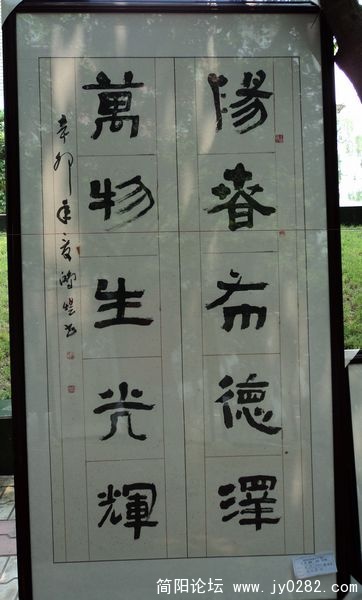 陽春布德澤
萬物生光輝
辛卯年夏
简阳论坛 www.jy0282.com